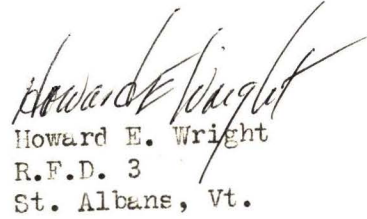 Howard E Wright
Howard E. Wright
R.F.D. 3
St. Albans, Vt.